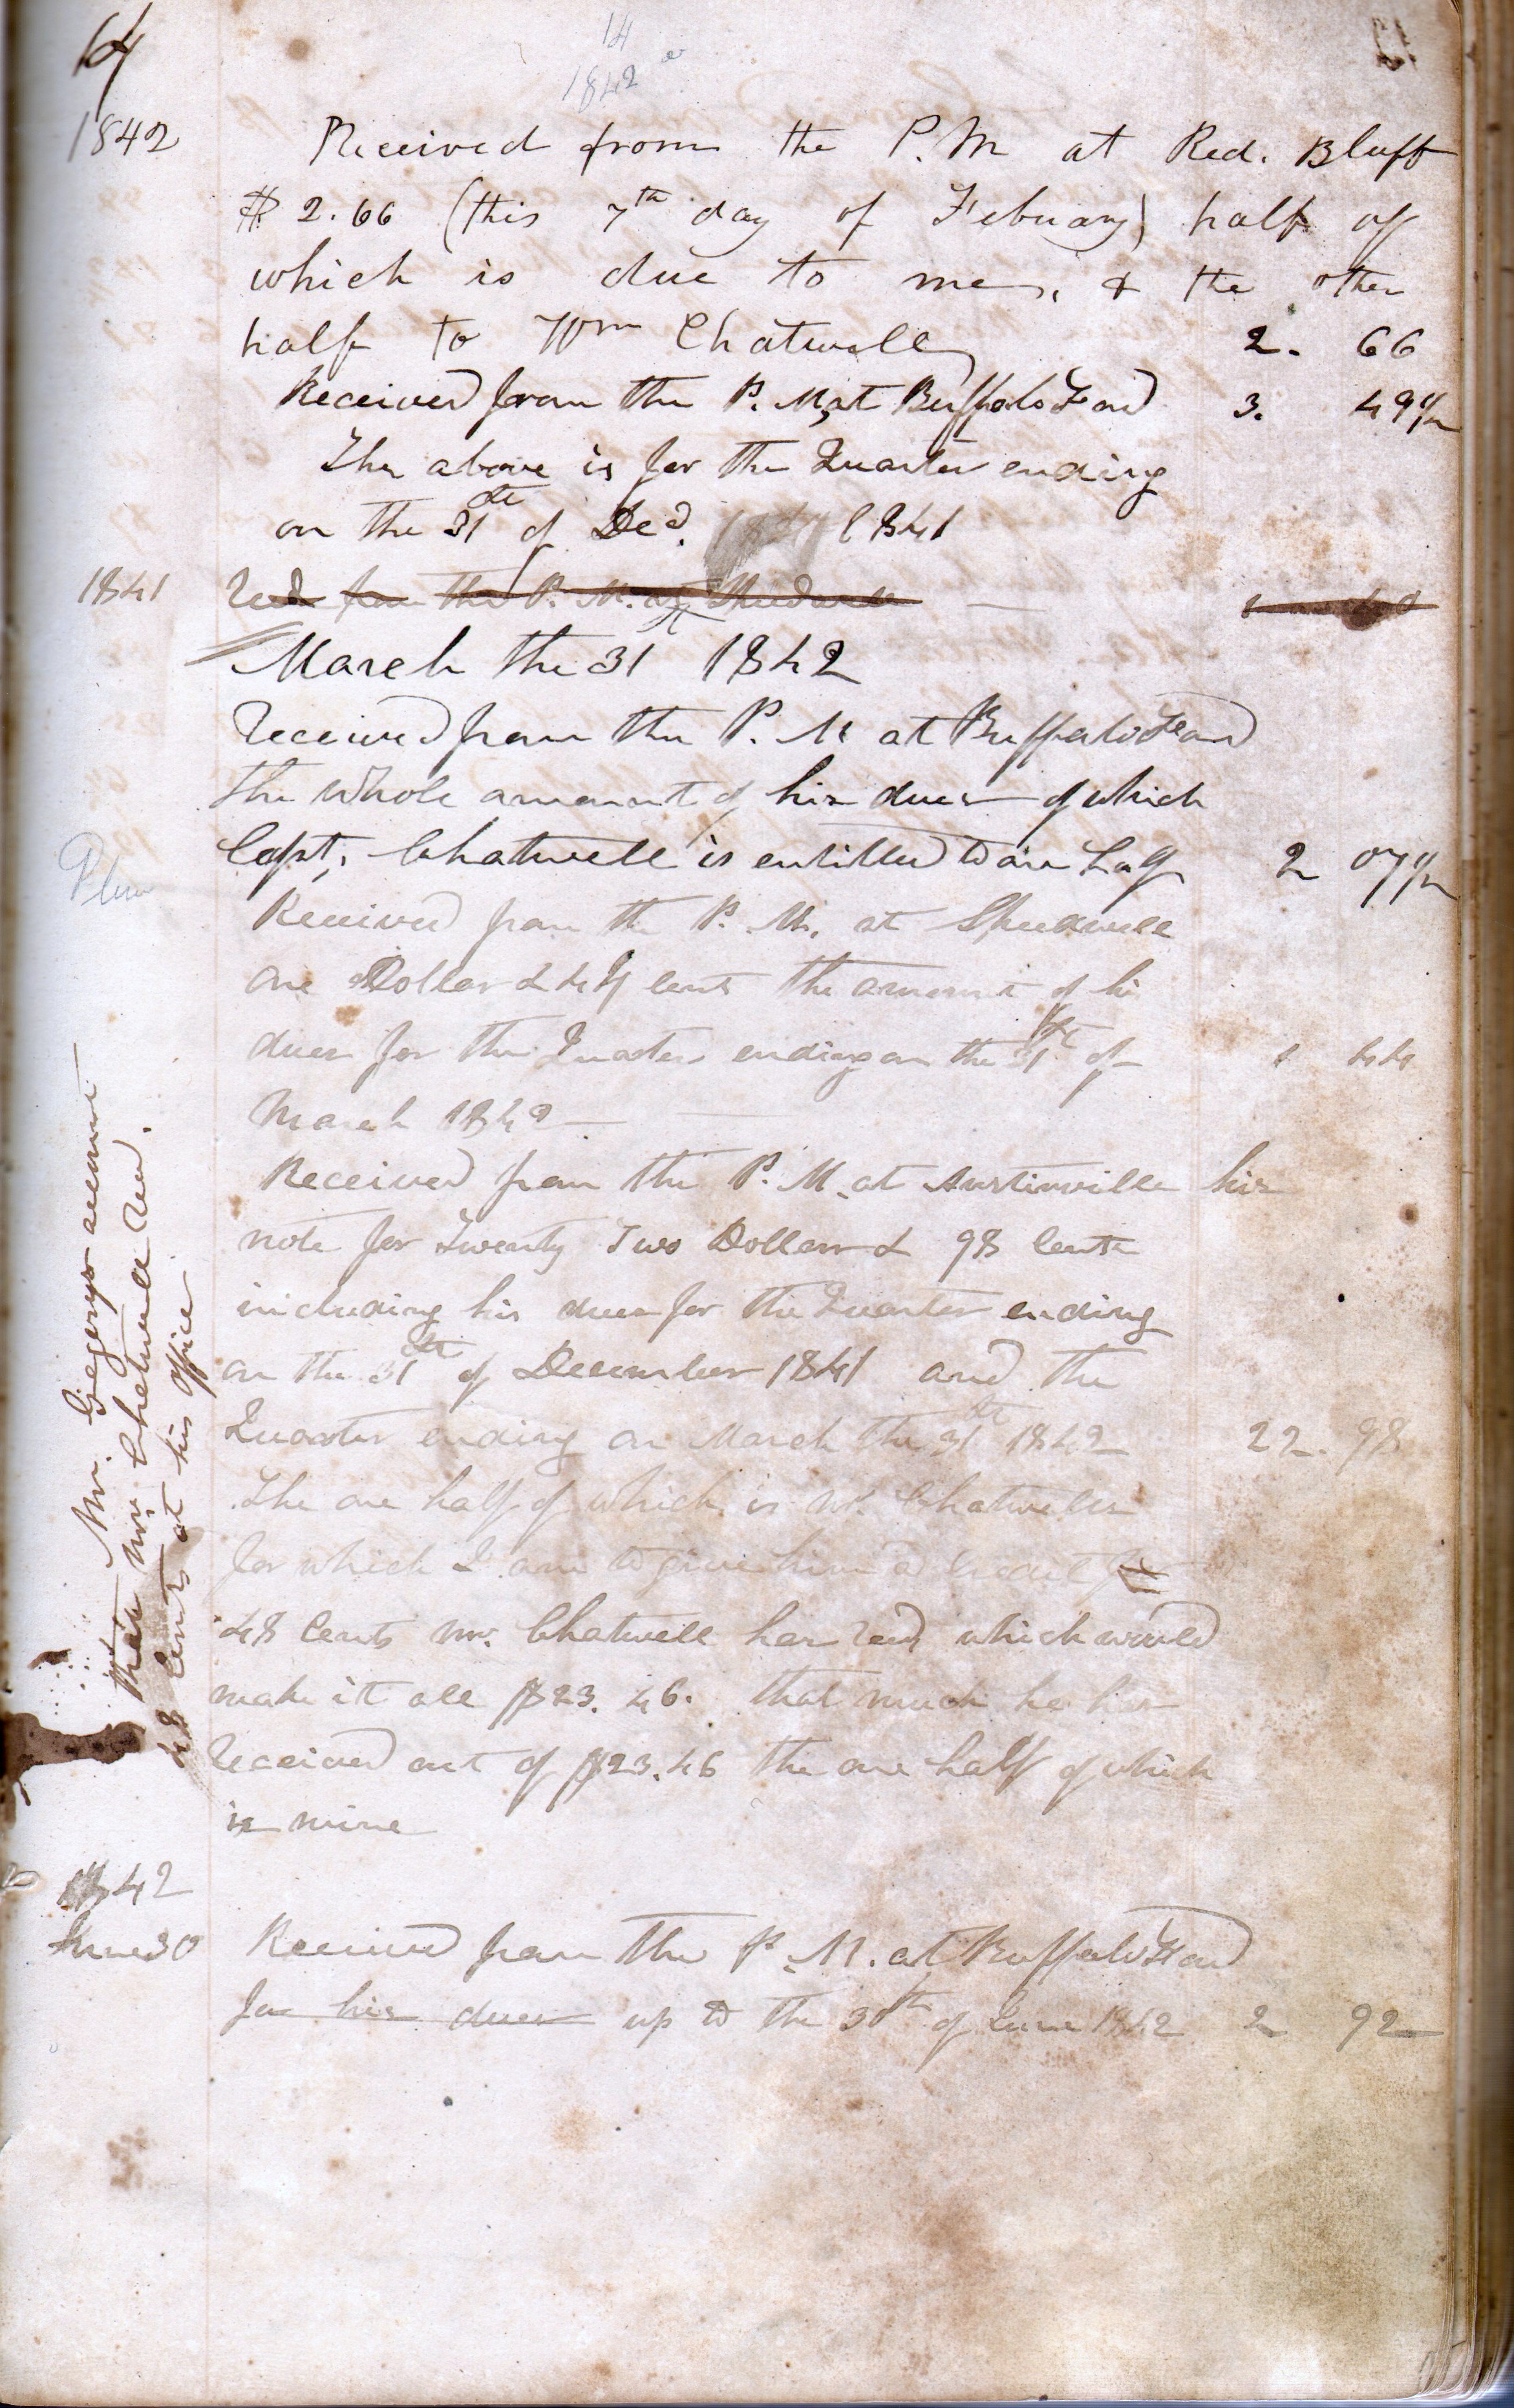 64
14
1842
1842 Received from the P.M at Red. Bluff
$ 2.66 (this 7th day of Febuary) half of
which is due to me, & the other
half to Wm Chatwell 2. 66
Received from the P. M, at Buffalo Ford 3. 49 1/2
The above is for the Quarter ending
on the 31st of Decd. 1841
1841 Recd from the P. M. at Speedwell
March the 31st 1842
Received from the P. M at Buffalo Ford
the whole amount of his dues of which
Capt, Chatwell is entitled to one half 2 07 1/2
Received from the P. M. at Speedwell
one Dollar & 44 cents the amount of his
dues for the Quarter ending on the 31st of 1 44
March 1842
Received from the P. M. at Austinville his
note for Twenty Two Dollars & 98 cents
including his dues for the Quarter ending
on the 31st of December 1841 and the
Quarter ending on March the 31st 1842 22. 98
The one half of which is Mr. Chatwells
for which I am to give him a credit for
48 Cents Mr. Chatwell has recd which would
make it all $23. 46. that much he has
received out of $23.46 the one half of which
is mine
1842
June 30 Received from the P. M. at Buffalo Ford
for his dues up to the 30th of June 1842 2 92
Mr. Gregorys account
that Mr. Chatwell Recd.
48 Cents at his office